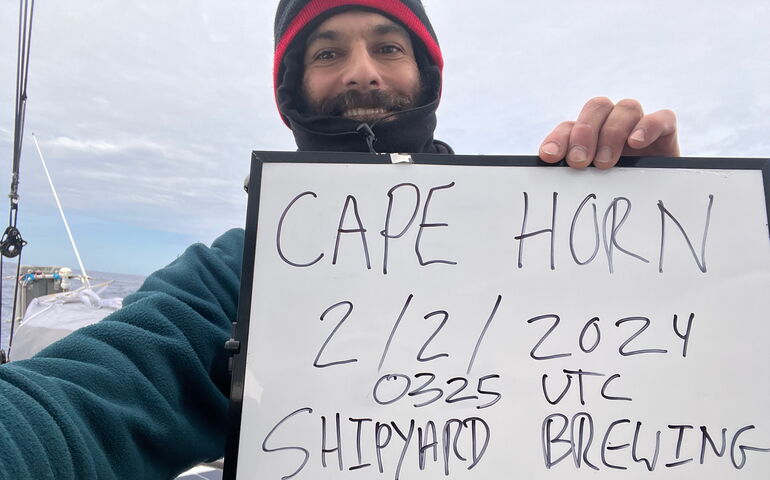 CAPE HORN
2/2/2024
0325 UTC
SHIPYARD BREWING